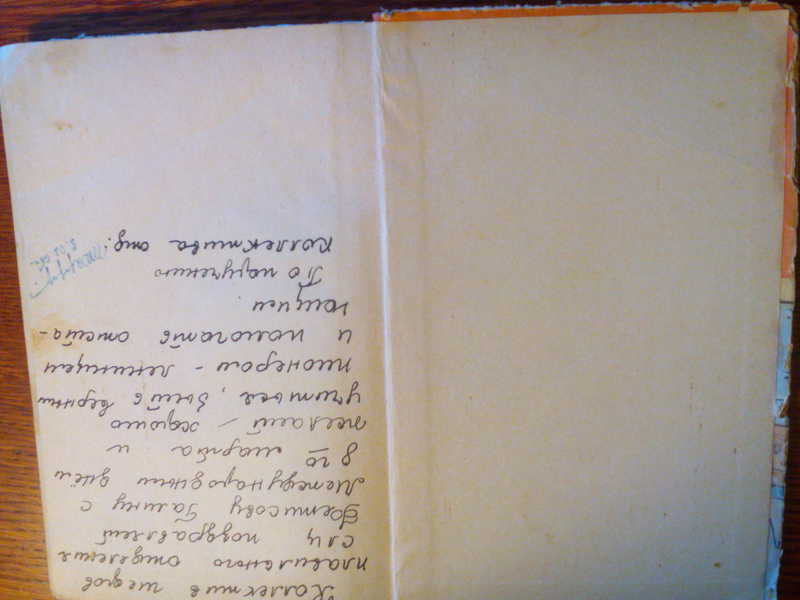 Коллектив шефов
плавильного отделения
СЛЦ поздравляет
Фетисову Галину с
Международным днём
8го марта и
желает – хорошо
учиться, быть верным
пионером – ленинцем
и помогать отста-
ющим.
По поручению
коллектива отд: